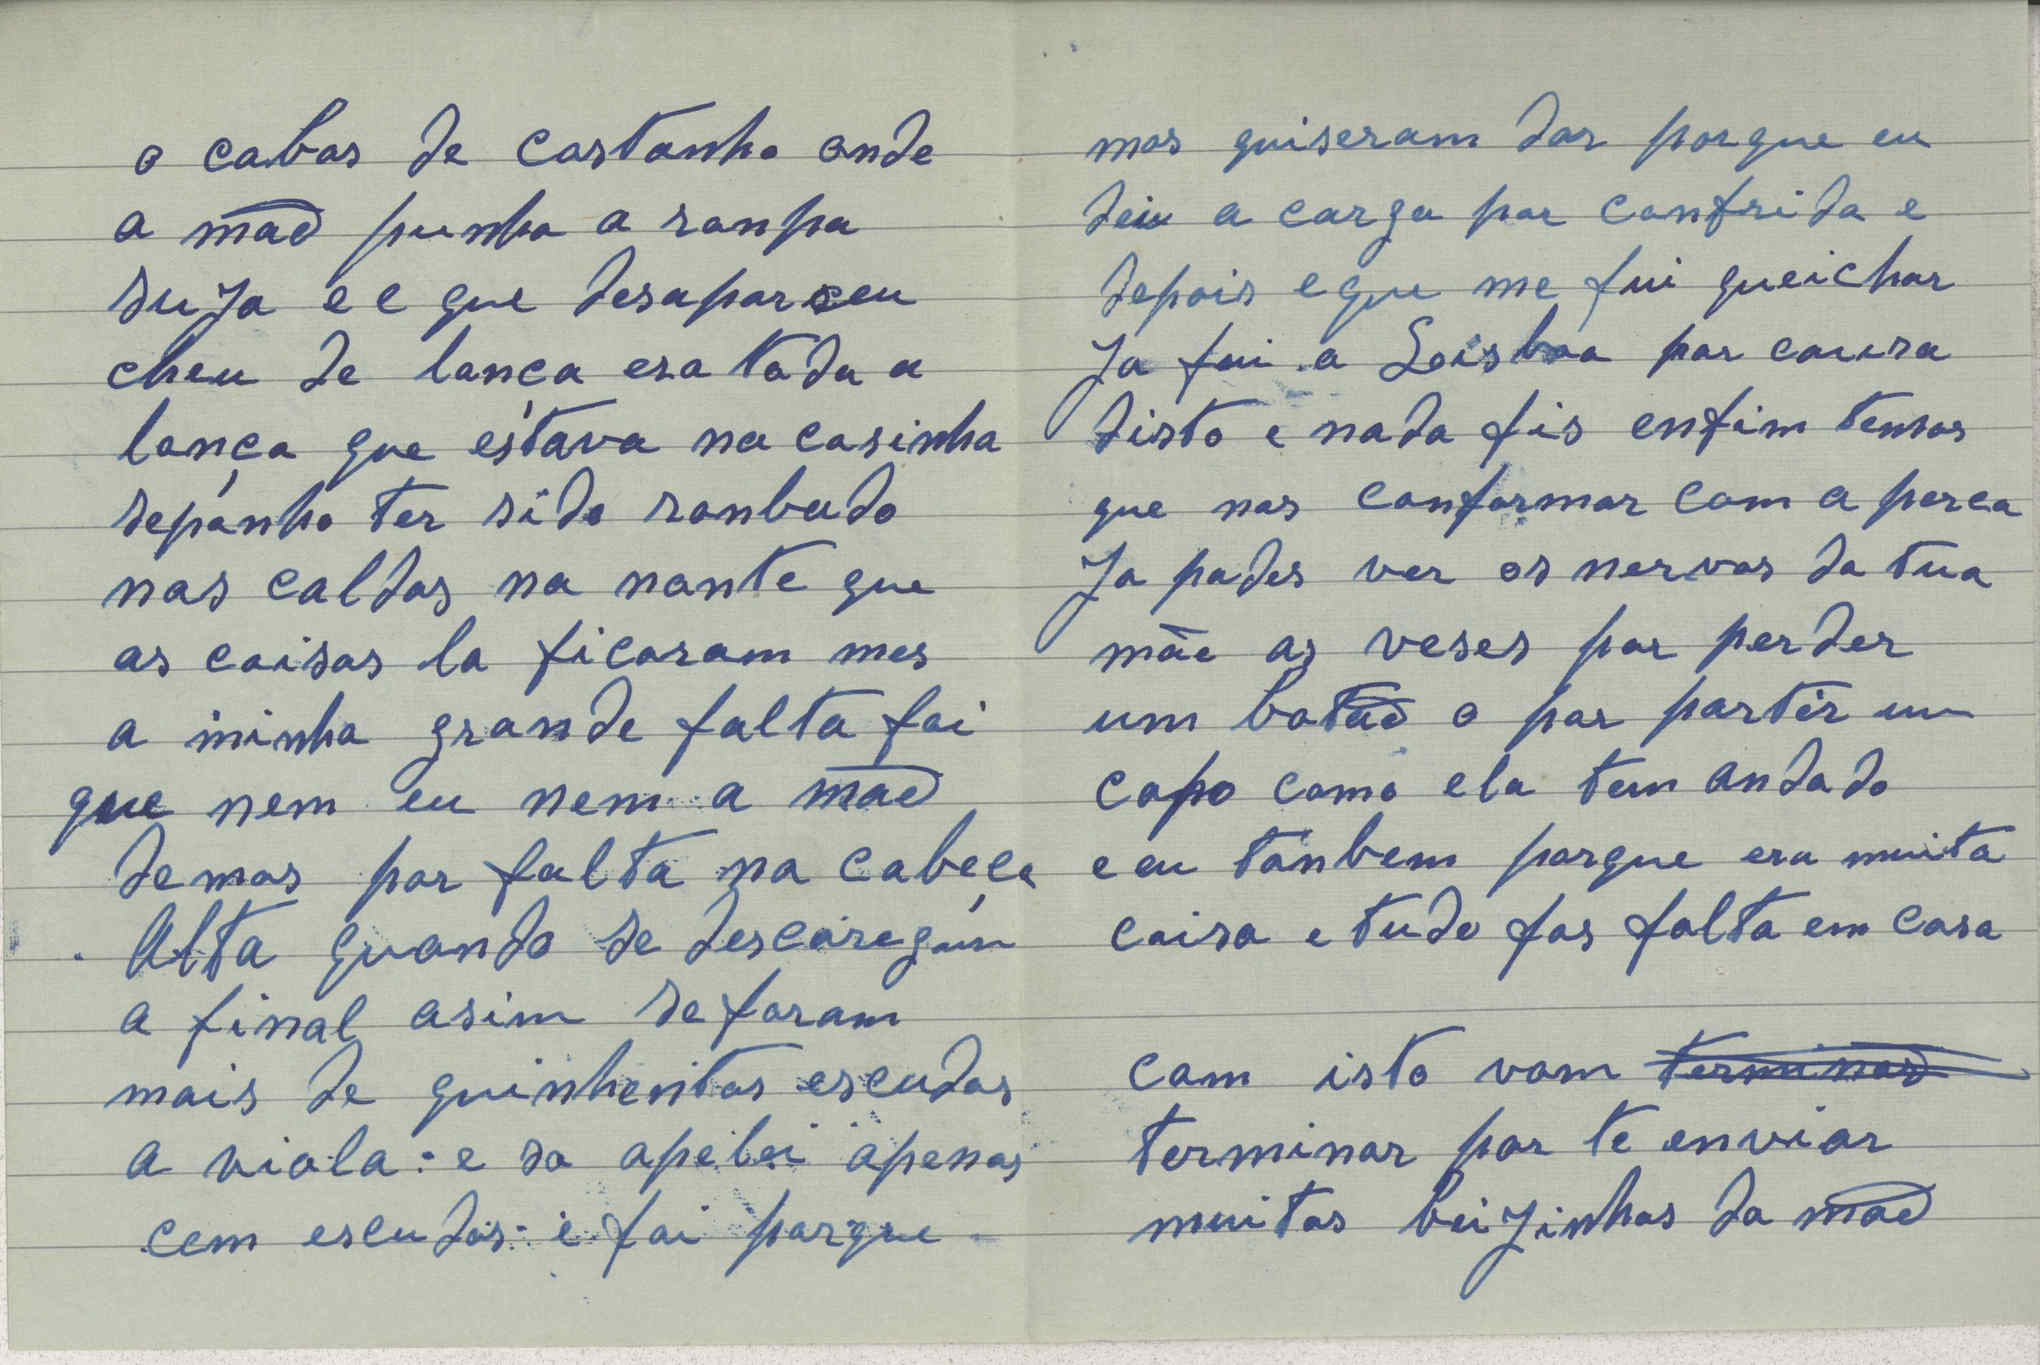 o cabas de castanho onde
a mãe punha a ronpa
suja e e que desapareceu
cheu de lança era toda a
lança que estava na casinha
seponho ter sido ronbado
nas caldas na nonte que
as coisas la ficaram mes
a minha grande falta foi
que nem eu nem a mãe
demos por falta na cabeça
Alta quando se descaregun
a final asim se foram
mais de quinhentos escudos
a viola: e so apelei apenas
cem escudos: e foi porque
mos quiseram dar porque eu
deiu a carga por confrida e
depois e que me fui queichar
Ja fui a Leisboa por causa
disto e nada fis enfim temos
que nos conformar com a perca
Ja podes ver os nervos da tua
mãe as veses por perder
um botão o por partir un
copo como ela tem andado
e eu tanbem porque era muita
coisa e tudo fas falta em casa
com isto vom terminar
terminar por te enviar
muitos beijinhos da mãe